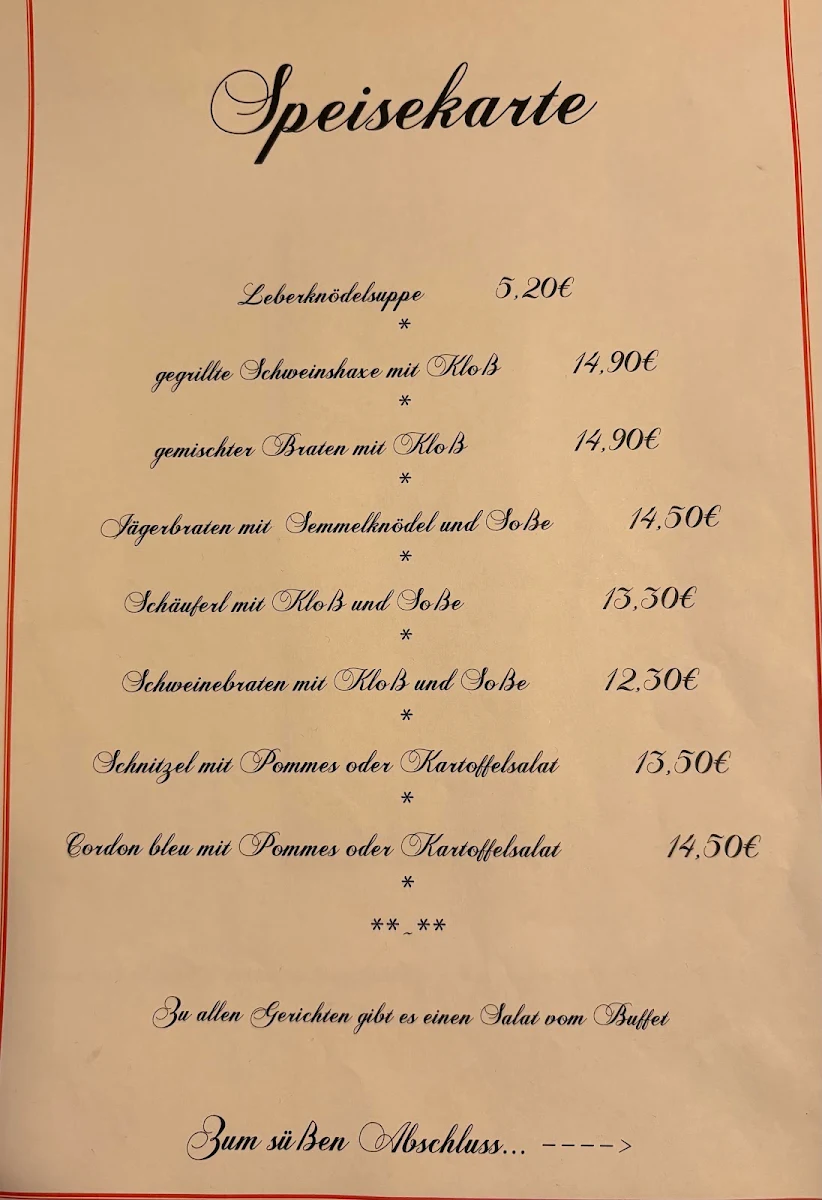 Speisekarte
Leberknödelsuppe 5,20€
*
gegrillte Schweinshaxe mit Kloß 14,90€
*
gemischter Braten mit Kloß 14,90€
*
Jägerbraten mit Semmelknödel und Soße 14,50€
*
Schäuferl mit Kloß und Soße 13,30€
*
Schweinebraten mit Kloß und Soße 12,30€
*
Schnitzel mit Pommes oder Kartoffelsalat 13,50€
*
Cordon bleu mit Pommes oder Kartoffelsalat 14,50€
*
**~**
Zu allen Gerichten gibt es einen Salat vom Buffet
Zum süßen Abschluss... ---->